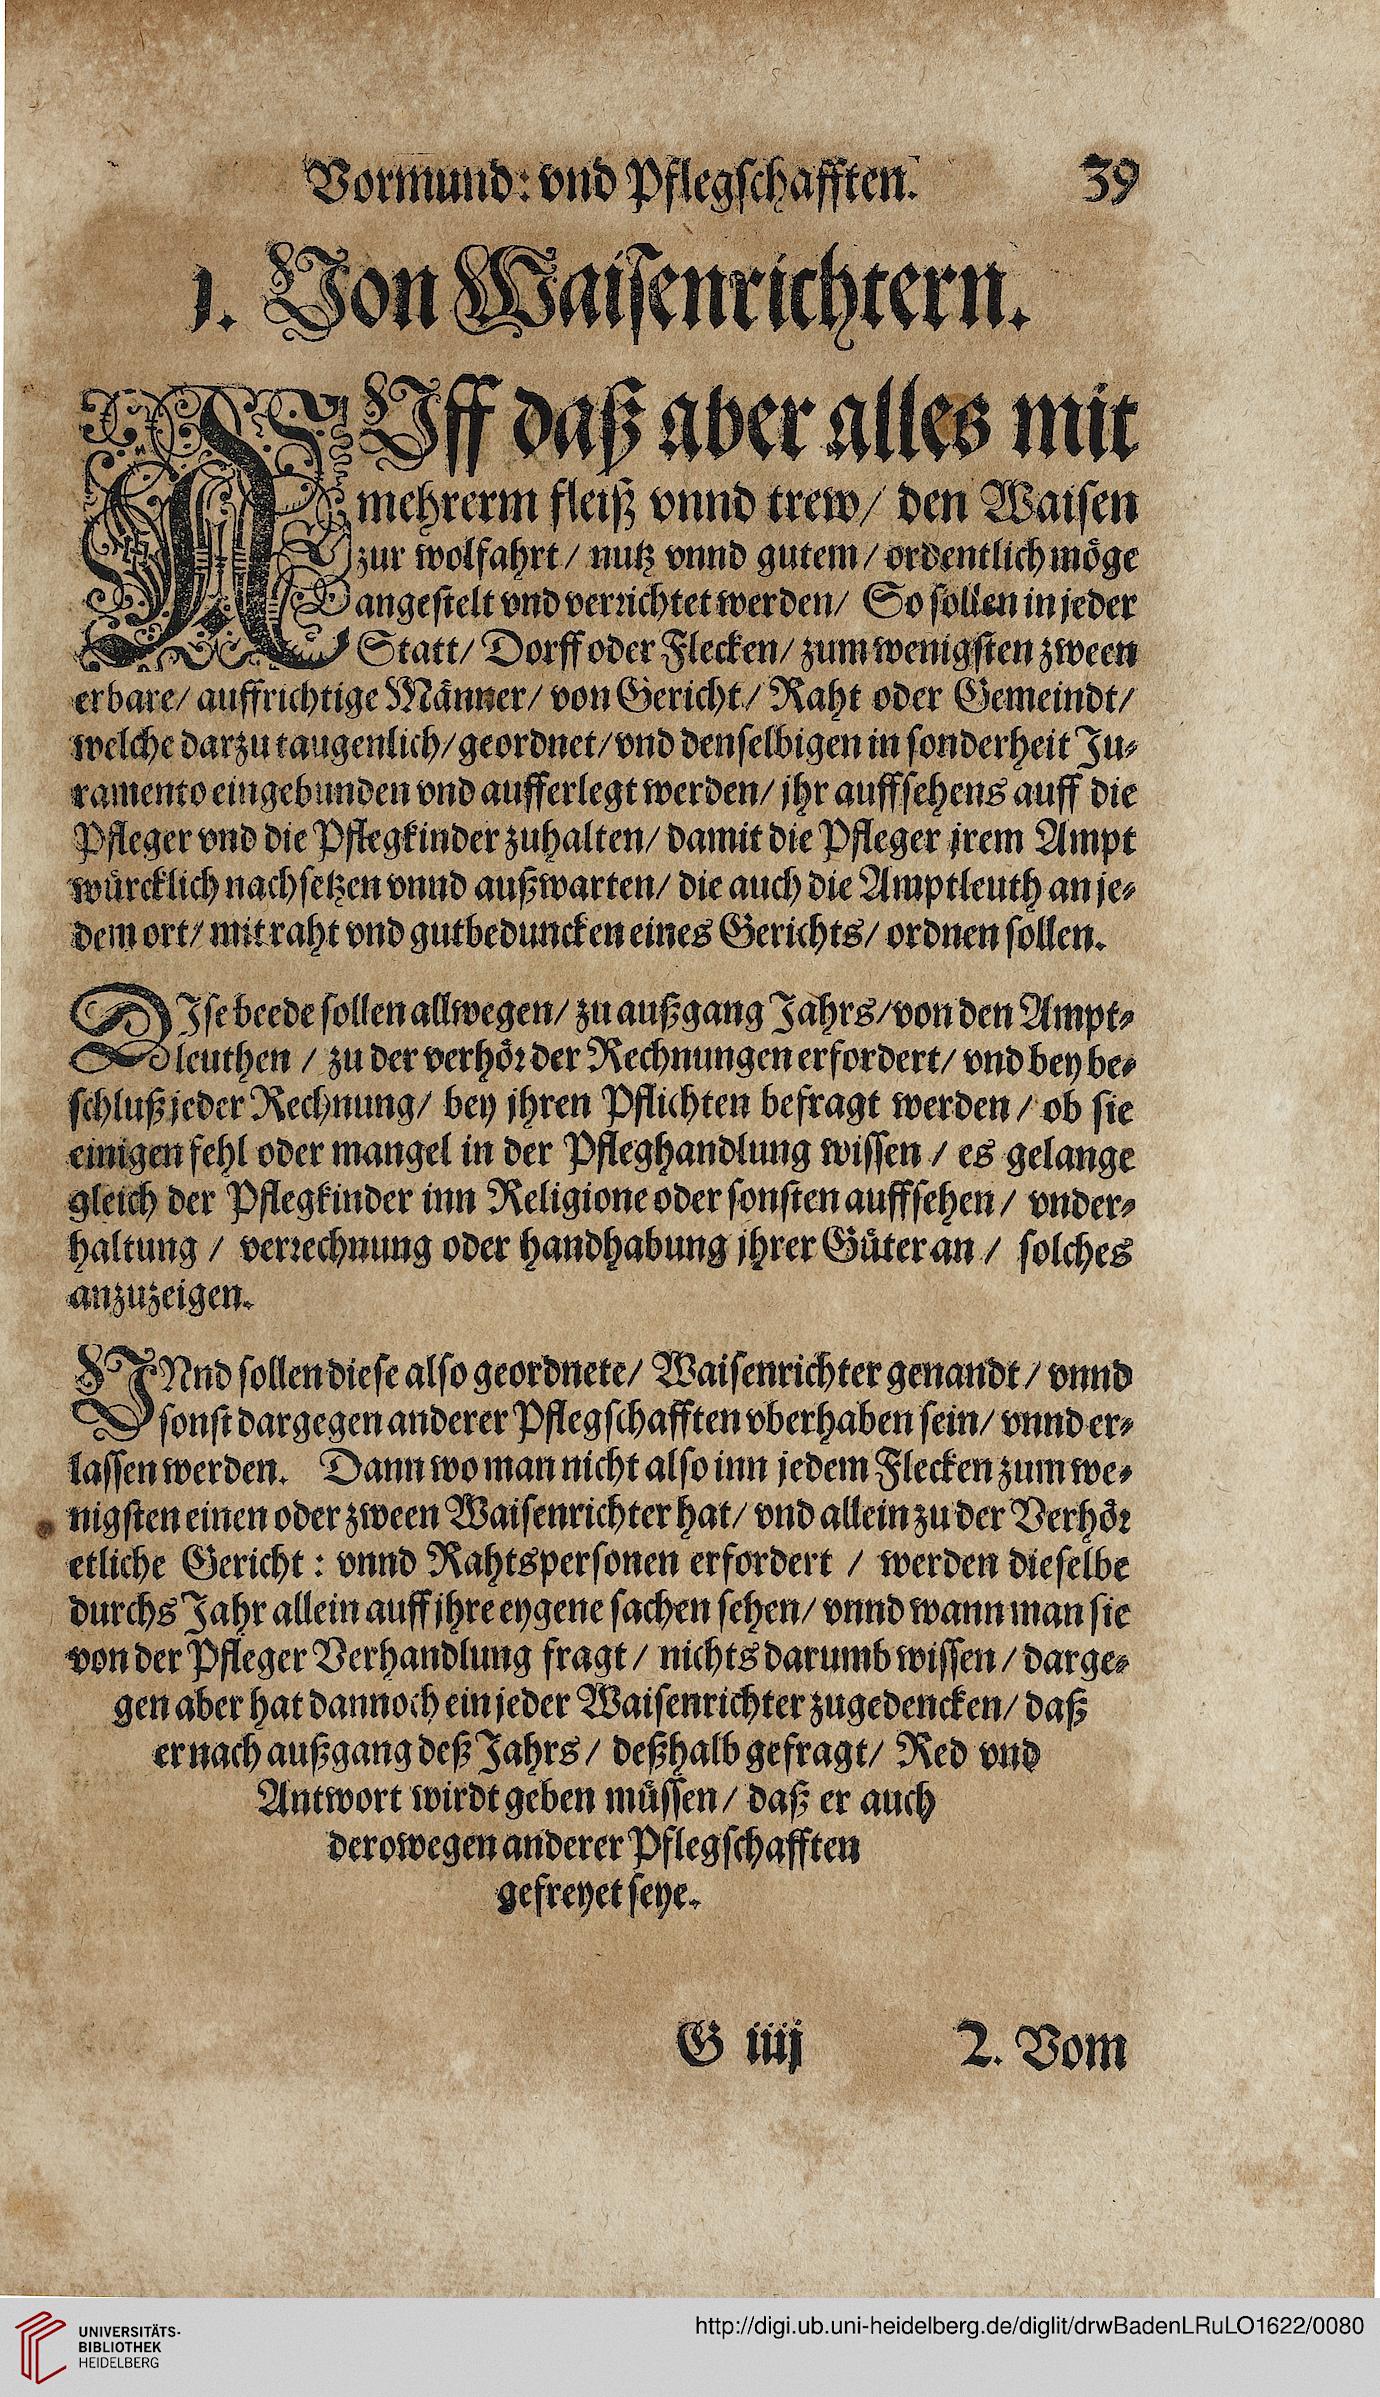 Vormund: vnd Pflegschafften. 39
1. Von Waisenrichtern.
AVff daß aber alles mit
mehrerm fleiß vnnd trew/ den Waisen
zur wolfahrt/ nutz vnnd gutem/ ordentlich möge
angestelt vnd verrichtet werden/ So sollen in jeder
Statt/ Dorff oder Flecken/ zum wenigsten zween
erbare/ auffrichtige Männer/ von Gericht/ Raht oder Gemeindt/
welche darzu taugenlich/ geordnet/ vnd denselbigen in sonderheit Ju-
ramento eingebunden vnd aufferlegt werden/ jhr auffsehens auff die
Pfleger vnd die Pflegkinder zuhalten/ damit die Pfleger jrem Ampt
würcklich nachsetzen vnnd außwarten/ die auch die Amptleuth an je-
dem ort/ mit raht vnd gutbeduncken eines Gerichts/ ordnen sollen.
DIse beede sollen allwegen/ zu außgang Jahrs/ von den Ampt-
leuthen / zu der verhör der Rechnungen erfordert/ vnd bey be-
schluß jeder Rechnung/ bey jhren Pflichten befragt werden / ob sie
einigen fehl oder mangel in der Pfleghandlung wissen / es gelange
gleich der Pflegkinder inn Religione oder sonsten auffsehen / vnder-
haltung / verrechnung oder handhabung jhrer Güter an / solches
anzuzeigen.
VNnd sollen diese also geordnete/ Waisenrichter genandt / vnnd
sonst dargegen anderer Pflegschafften vberhaben sein/ vnnd er-
lassen werden. Dann wo man nicht also inn jedem Flecken zum we-
nigsten einen oder zween Waisenrichter hat/ vnd allein zu der Verhör
etliche Gericht: vnnd Rahtspersonen erfordert / werden dieselbe
durchs Jahr allein auff jhre eygene sachen sehen/ vnnd wann man sie
von der Pfleger Verhandlung fragt / nichts darumb wissen / darge-
gen aber hat dannoch ein jeder Waisenrichter zugedencken/ daß
er nach außgang deß Jahrs / deßhalb gefragt/ Red vnd
Antwort wirdt geben müssen/ daß er auch
derowegen anderer Pflegschafften
gefreyet seye.
G iiij 2. Vom
UNIVERSITÄTS-
BIBLIOTHEK
HEIDELBERG
http://digi.ub.uni-heidelberg.de/diglit/drwBadenLRuLO1622/0080